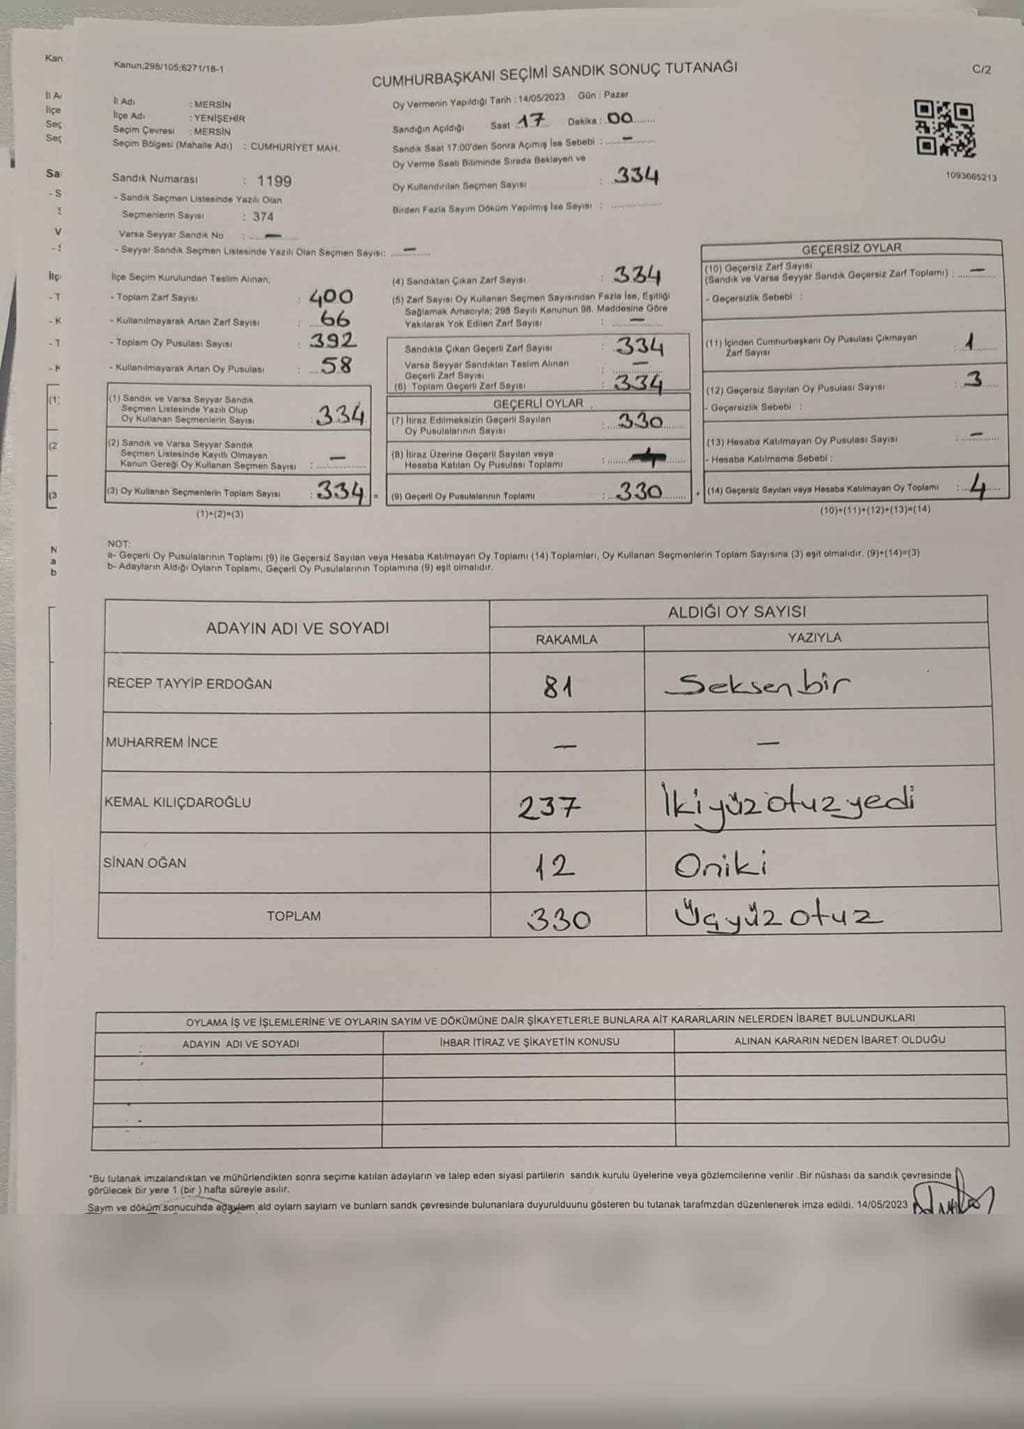 Kanun;298/105;6271/18-1
CUMHURBAŞKANI SEÇİMİ SANDIK SONUÇ TUTANAĞI
C/2
İl Adı : MERSİN
İlçe Adı : YENİŞEHİR
Seçim Çevresi : MERSİN
Seçim Bölgesi (Mahalle Adı) : CUMHURİYET MAH.
Oy Vermenin Yapıldığı Tarih : 14/05/2023 Gün : Pazar
Sandığın Açıldığı Saat 17 Dakika : 00
Sandık Saat 17:00'den Sonra Açımış İse Sebebi : –
Oy Verme Saati Bitiminde Sırada Bekleyen ve
Oy Kullandırılan Seçmen Sayısı : 334
Birden Fazla Sayım Döküm Yapılmış İse Sayısı :
1093665213
Sandık Numarası : 1199
- Sandık Seçmen Listesinde Yazılı Olan
Seçmenlerin Sayısı : 374
Varsa Seyyar Sandık No : –
- Seyyar Sandık Seçmen Listesinde Yazılı Olan Seçmen Sayısı: –
İlçe Seçim Kurulundan Teslim Alınan;
- Toplam Zarf Sayısı : 400
- Kullanılmayarak Artan Zarf Sayısı : 66
- Toplam Oy Pusulası Sayısı : 392
- Kullanılmayarak Artan Oy Pusulası : 58
(1) Sandık ve Varsa Seyyar Sandık
Seçmen Listesinde Yazılı Olup
Oy Kullanan Seçmenlerin Sayısı : 334
(2) Sandık ve Varsa Seyyar Sandık
Seçmen Listesinde Kayıtlı Olmayan
Kanun Gereği Oy Kullanan Seçmen Sayısı : –
(3) Oy Kullanan Seçmenlerin Toplam Sayısı : 334 =
(1)+(2)=(3)
(4) Sandıktan Çıkan Zarf Sayısı : 334
(5) Zarf Sayısı Oy Kullanan Seçmen Sayısından Fazla İse, Eşitliği
Sağlamak Amacıyla; 298 Sayılı Kanunun 98. Maddesine Göre
Yakılarak Yok Edilen Zarf Sayısı : –
Sandıkta Çıkan Geçerli Zarf Sayısı : 334
Varsa Seyyar Sandıktan Teslim Alınan
Geçerli Zarf Sayısı : –
(6) Toplam Geçerli Zarf Sayısı : 334
GEÇERLİ OYLAR
(7) İtiraz Edilmeksizin Geçerli Sayılan
Oy Pusulalarının Sayısı : 330
(8) İtiraz Üzerine Geçerli Sayılan veya
Hesaba Katılan Oy Pusulası Toplamı :
(9) Geçerli Oy Pusulalarının Toplamı : 330 +
GEÇERSİZ OYLAR
(10) Geçersiz Zarf Sayısı
(Sandık ve Varsa Seyyar Sandık Geçersiz Zarf Toplamı) : –
- Geçersizlik Sebebi :
(11) İçinden Cumhurbaşkanı Oy Pusulası Çıkmayan
Zarf Sayısı : 1
(12) Geçersiz Sayılan Oy Pusulası Sayısı : 3
- Geçersizlik Sebebi :
(13) Hesaba Katılmayan Oy Pusulası Sayısı : –
- Hesaba Katılmama Sebebi :
(14) Geçersiz Sayılan veya Hesaba Katılmayan Oy Toplamı : 4
(10)+(11)+(12)+(13)=(14)
NOT:
a- Geçerli Oy Pusulalarının Toplamı (9) ile Geçersiz Sayılan veya Hesaba Katılmayan Oy Toplamı (14) Toplamları, Oy Kullanan Seçmenlerin Toplam Sayısına (3) eşit olmalıdır. (9)+(14)=(3)
b- Adayların Aldığı Oyların Toplamı, Geçerli Oy Pusulalarının Toplamına (9) eşit olmalıdır.
ADAYIN ADI VE SOYADI
ALDIĞI OY SAYISI
RAKAMLA YAZIYLA
RECEP TAYYİP ERDOĞAN 81 Seksen bir
MUHARREM İNCE – –
KEMAL KILIÇDAROĞLU 237 İki yüz otuz yedi
SİNAN OĞAN 12 Oniki
TOPLAM 330 Üçyüz otuz
OYLAMA İŞ VE İŞLEMLERİNE VE OYLARIN SAYIM VE DÖKÜMÜNE DAİR ŞİKAYETLERLE BUNLARA AİT KARARLARIN NELERDEN İBARET BULUNDUKLARI
ADAYIN ADI VE SOYADI İHBAR İTİRAZ VE ŞİKAYETİN KONUSU ALINAN KARARIN NEDEN İBARET OLDUĞU
*Bu tutanak imzalandıktan ve mühürlendikten sonra seçime katılan adayların ve talep eden siyasi partilerin sandık kurulu üyelerine veya gözlemcilerine verilir .Bir nüshası da sandık çevresinde
görülecek bir yere 1 (bir ) hafta süreyle asılır.
Sayım ve döküm sonucuhda adaylam ald oylarn saylarn ve bunlarn sandk çevresinde bulunanlara duyurulduunu gösteren bu tutanak tarafmzdan düzenlenerek imza edildi. 14/05/2023